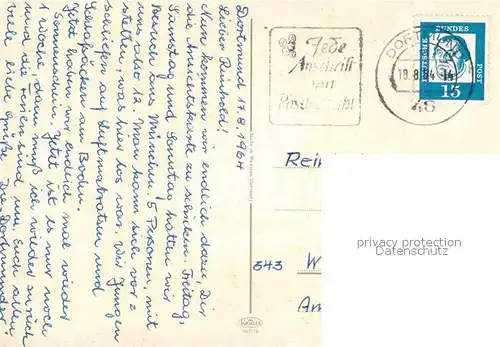 Dortmund 17.8.1964
Lieber Reinhold!
Nun kommen wir endlich dazu, Dir
die Ansichtskarte zu schicken. Freitag,
Samstag und Sonntag hatten wir
Besuch aus München. 5 Personen, mit
uns also 12. Man kann sich vor=
stellen, was hier los war. Wir Jungen
schliefen auf Luftmatratzen und
Schlafsäcken am Boden.
Jetzt haben wir endlich mal wieder
Sonnenschein. Jetzt ist es nur noch
1 Woche, dann muß ich wieder zurück
und die Ferien sind um. Euch allen
viele liebe Grüße Die Dortmunder
Jede
Anschrift
mit
Postleitzahl
DORTMUND
18.8.64-14
46
DEUTSCHE BUNDESPOST
15
Rei
543
W
An
privacy protection
Datenschutz
Krüger